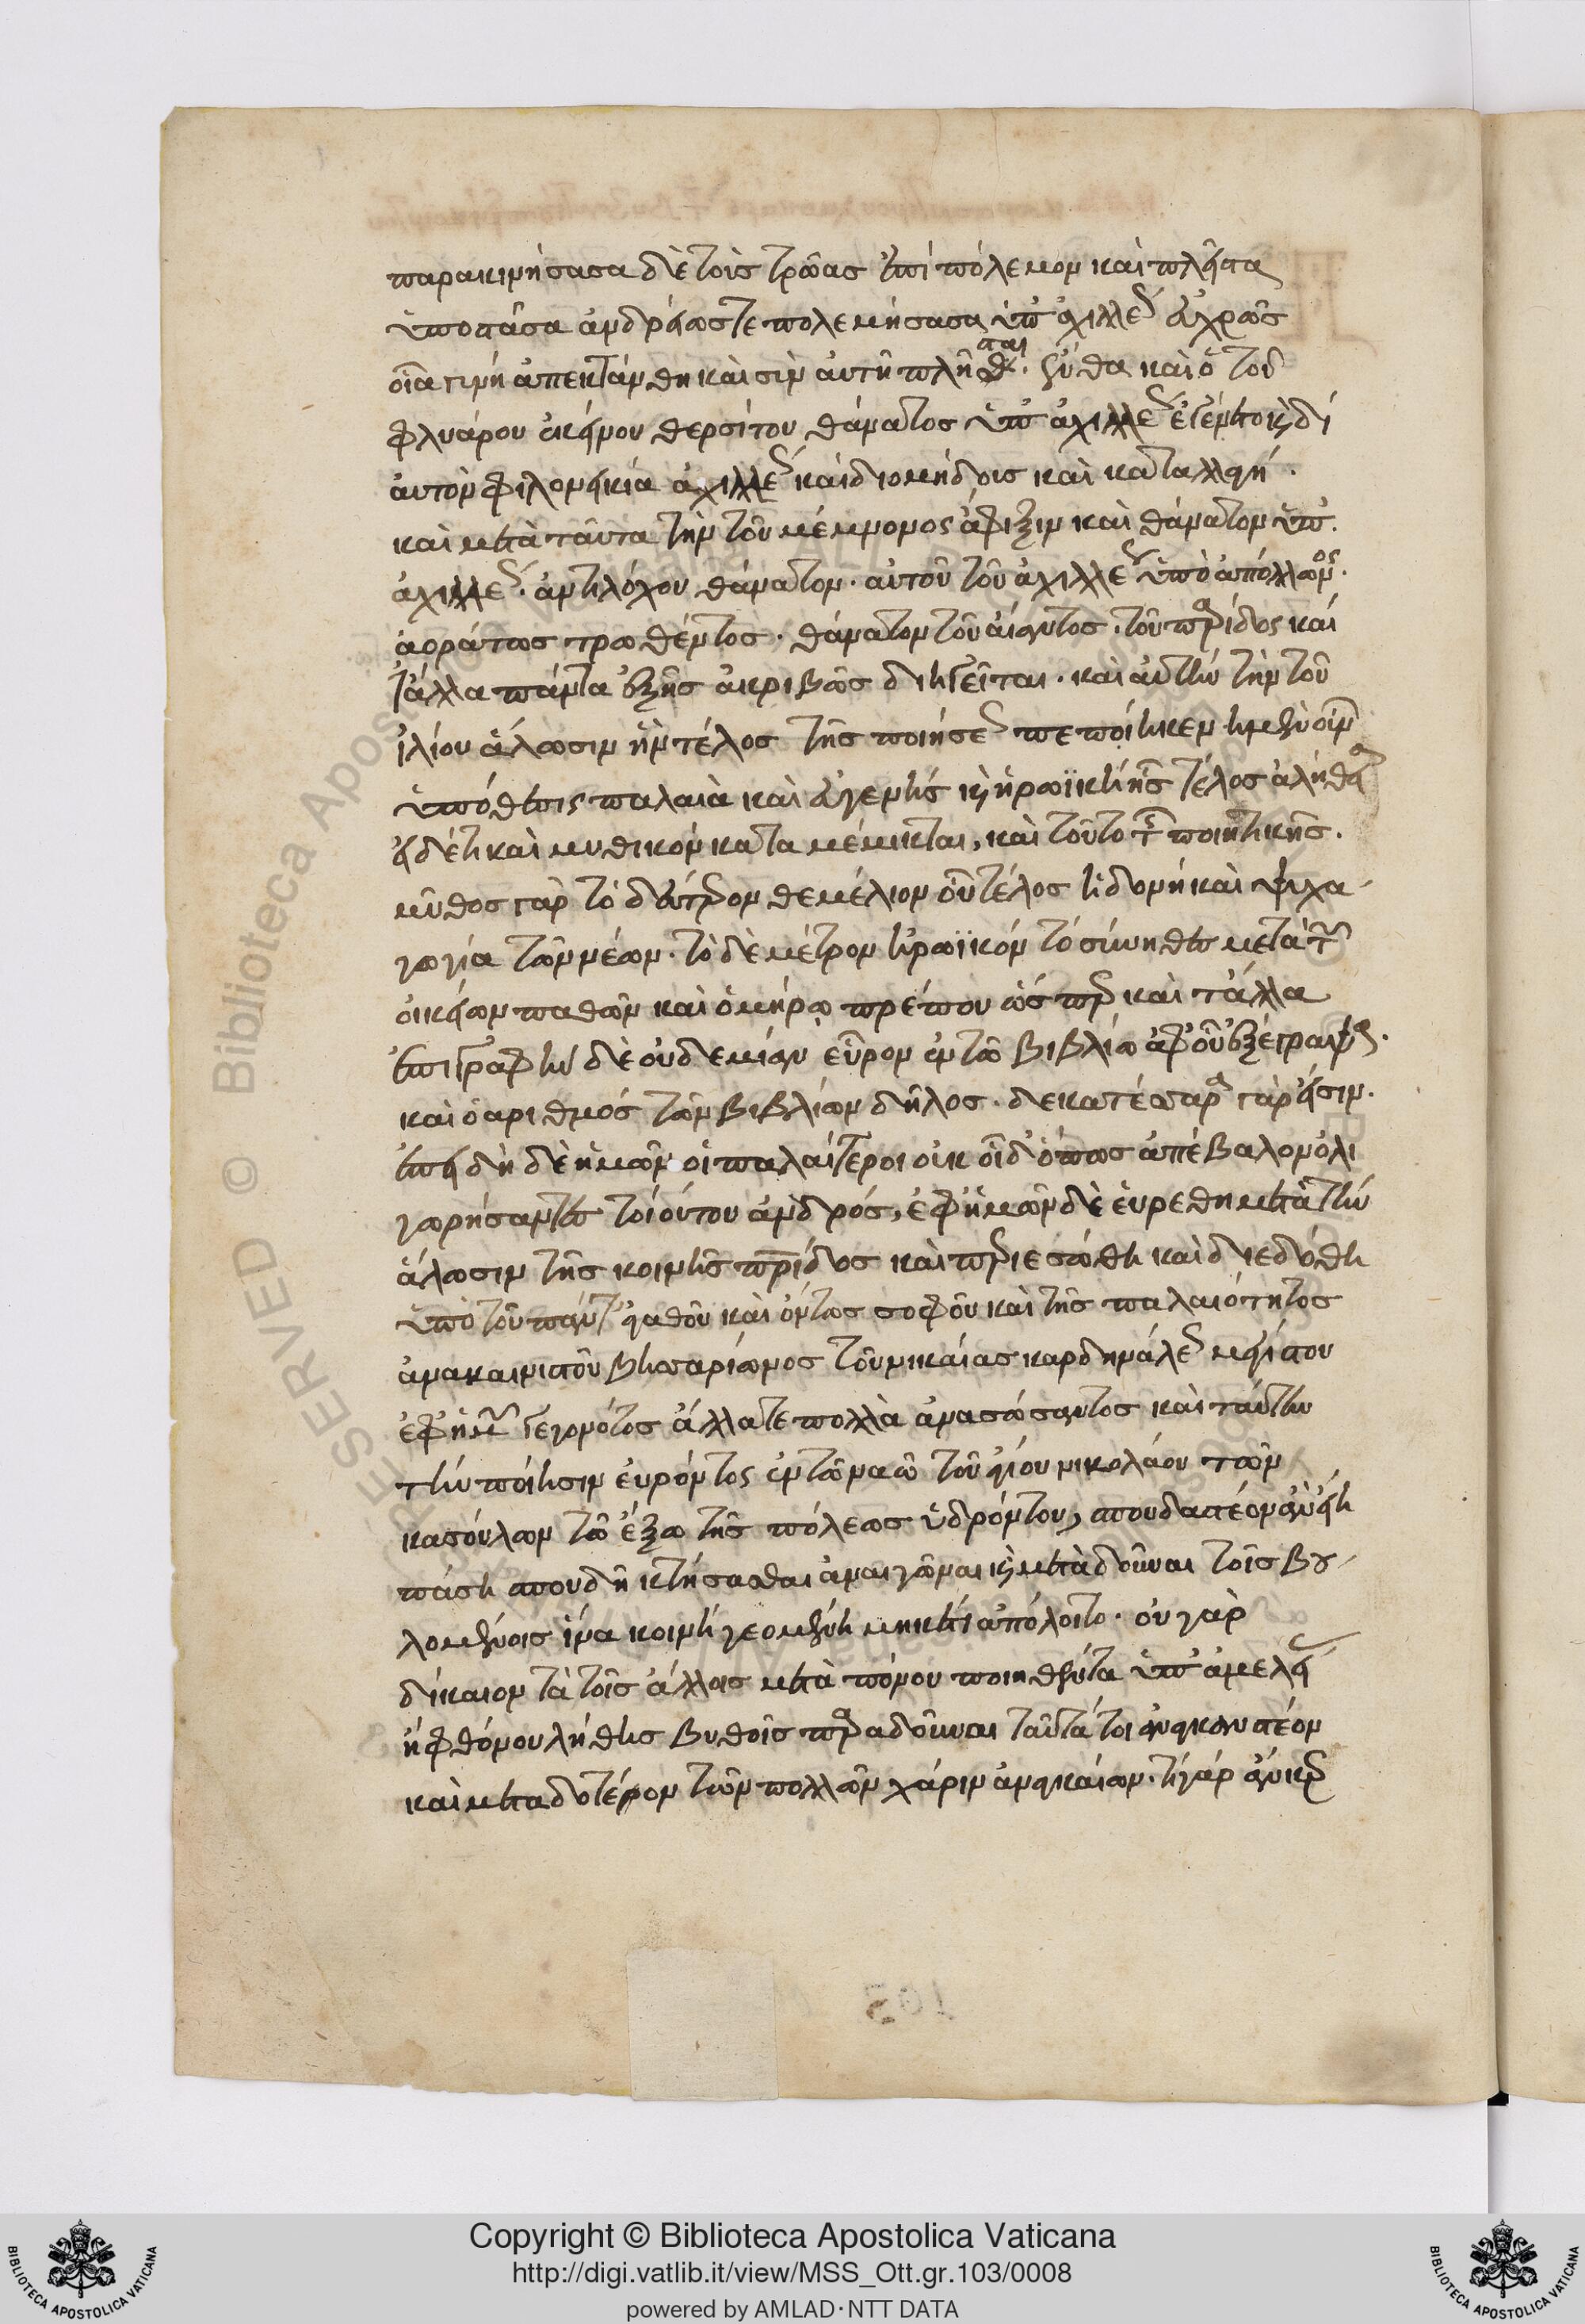 παρακινήσασα δὲ τοὺς τρῶας ἐπὶ πόλεμον καὶ πλεῖστα
ὑποστᾶσα ἀνδρείως τε πολεμήσασα ὑπ' ἀχιλλέως αἰσχρῶς
οἷα γυνὴ ἀπεκτάνθη καὶ σὺν αὐτῇ πλεῖσται. ἔνθα καὶ ὁ τοῦ
φλυάρου ἐκείνου θερσίτου θάνατος ὑπ' ἀχιλλέως ἐγένετο καὶ δι'
αὐτὸν φιλονεικία ἀχιλλέως καὶ διομήδους καὶ καταλλαγή.
καὶ μετὰ ταῦτα τὴν τοῦ μέμνονος ἄφιξιν καὶ θάνατον ὑπ'
ἀχιλλέως. ἀντιλόχου θάνατον. αὐτοῦ τοῦ ἀχιλλέως ὑπὸ ἀπόλλωνος
ἀοράτως τρωθέντος. θάνατον τοῦ αἴαντος. τοῦ πάριδος καὶ
τἄλλα πάντα ἑξῆς ἀκριβῶς διηγεῖται. καὶ αὐτὴν τὴν τοῦ
ἰλίου ἅλωσιν ἣν τέλος τῆς ποιήσεως πεποίηκεν ἡ μὲν οὖν
ὑπόθεσις παλαιὰ καὶ εὐγενὴς καὶ ἡρωϊκὴ ἧς τέλος ἀλήθεια
εἰ δέ τι καὶ μυθικὸν καταμέμικται, καὶ τοῦτο τῆς ποιητικῆς.
μῦθος γὰρ τὸ δεύτερον θεμέλιον οὗ τέλος ἡδονὴ καὶ ψυχα
γωγία τῶν νέων. τὸ δὲ μέτρον ἡρωϊκὸν τὸ σύνηθες μετὰ τῶν
οἰκείων παθῶν καὶ ὁμήρῳ πρέπον ὥσπερ καὶ τἄλλα
ἐπιγραφὴν δὲ οὐδεμίαν εὗρον ἐν τῷ βιβλίῳ ἀφ' οὗ ἐξέγραψα.
καὶ ὁ ἀριθμὸς τῶν βιβλίων δῆλος. δεκατέσσαρα γάρ εἰσιν.
ἐπειδὴ δὲ ἡμῶν οἱ παλαίτεροι οὐκ οἶδ' ὅπως ἀπέβαλον ὀλι
γωρήσαντες τοιούτου ἀνδρός, ἐφ' ἡμῶν δὲ εὑρέθη μετὰ τὴν
ἅλωσιν τῆς κοινῆς πατρίδος καὶ περιεσώθη καὶ διεδόθη
ὑπὸ τοῦ πάντ' ἀγαθοῦ καὶ ὄντως σοφοῦ καὶ τῆς παλαιότητος
ἀνακαινιστοῦ βησσαρίωνος τοῦ νικαίας καρδηνάλεως μεγίστου
ἐφ' ἡμῶν γεγονότος ἄλλα τε πολλὰ ἀνασώσαντος καὶ ταύτην
τὴν ποίησιν εὑρόντος ἐν τῷ ναῷ τοῦ ἁγίου νικολάου τῶν
κασούλων τῷ ἔξω τῆς πόλεως ὑδρόντου, σπουδαστέον ἂν εἴη
πάσῃ σπουδῇ κτήσασθαι ἀναγνῶναι καὶ μεταδοῦναι τοῖς βου
λομένοις ἵνα κοινὴ γενομένη μηκέτι ἀπόλοιτο. οὐ γὰρ
δίκαιον τὰ τοῖς ἄλλοις μετὰ πόνου ποιηθέντα ὑπ' ἀμελείας
ἢ φθόνου λήθης βυθοῖς παραδοῦναι ταῦτά τοι ἀναγνωστέον
καὶ μεταδοτέον τῶν πολλῶν χάριν ἀναγκαίων. τί γὰρ ἂν καὶ